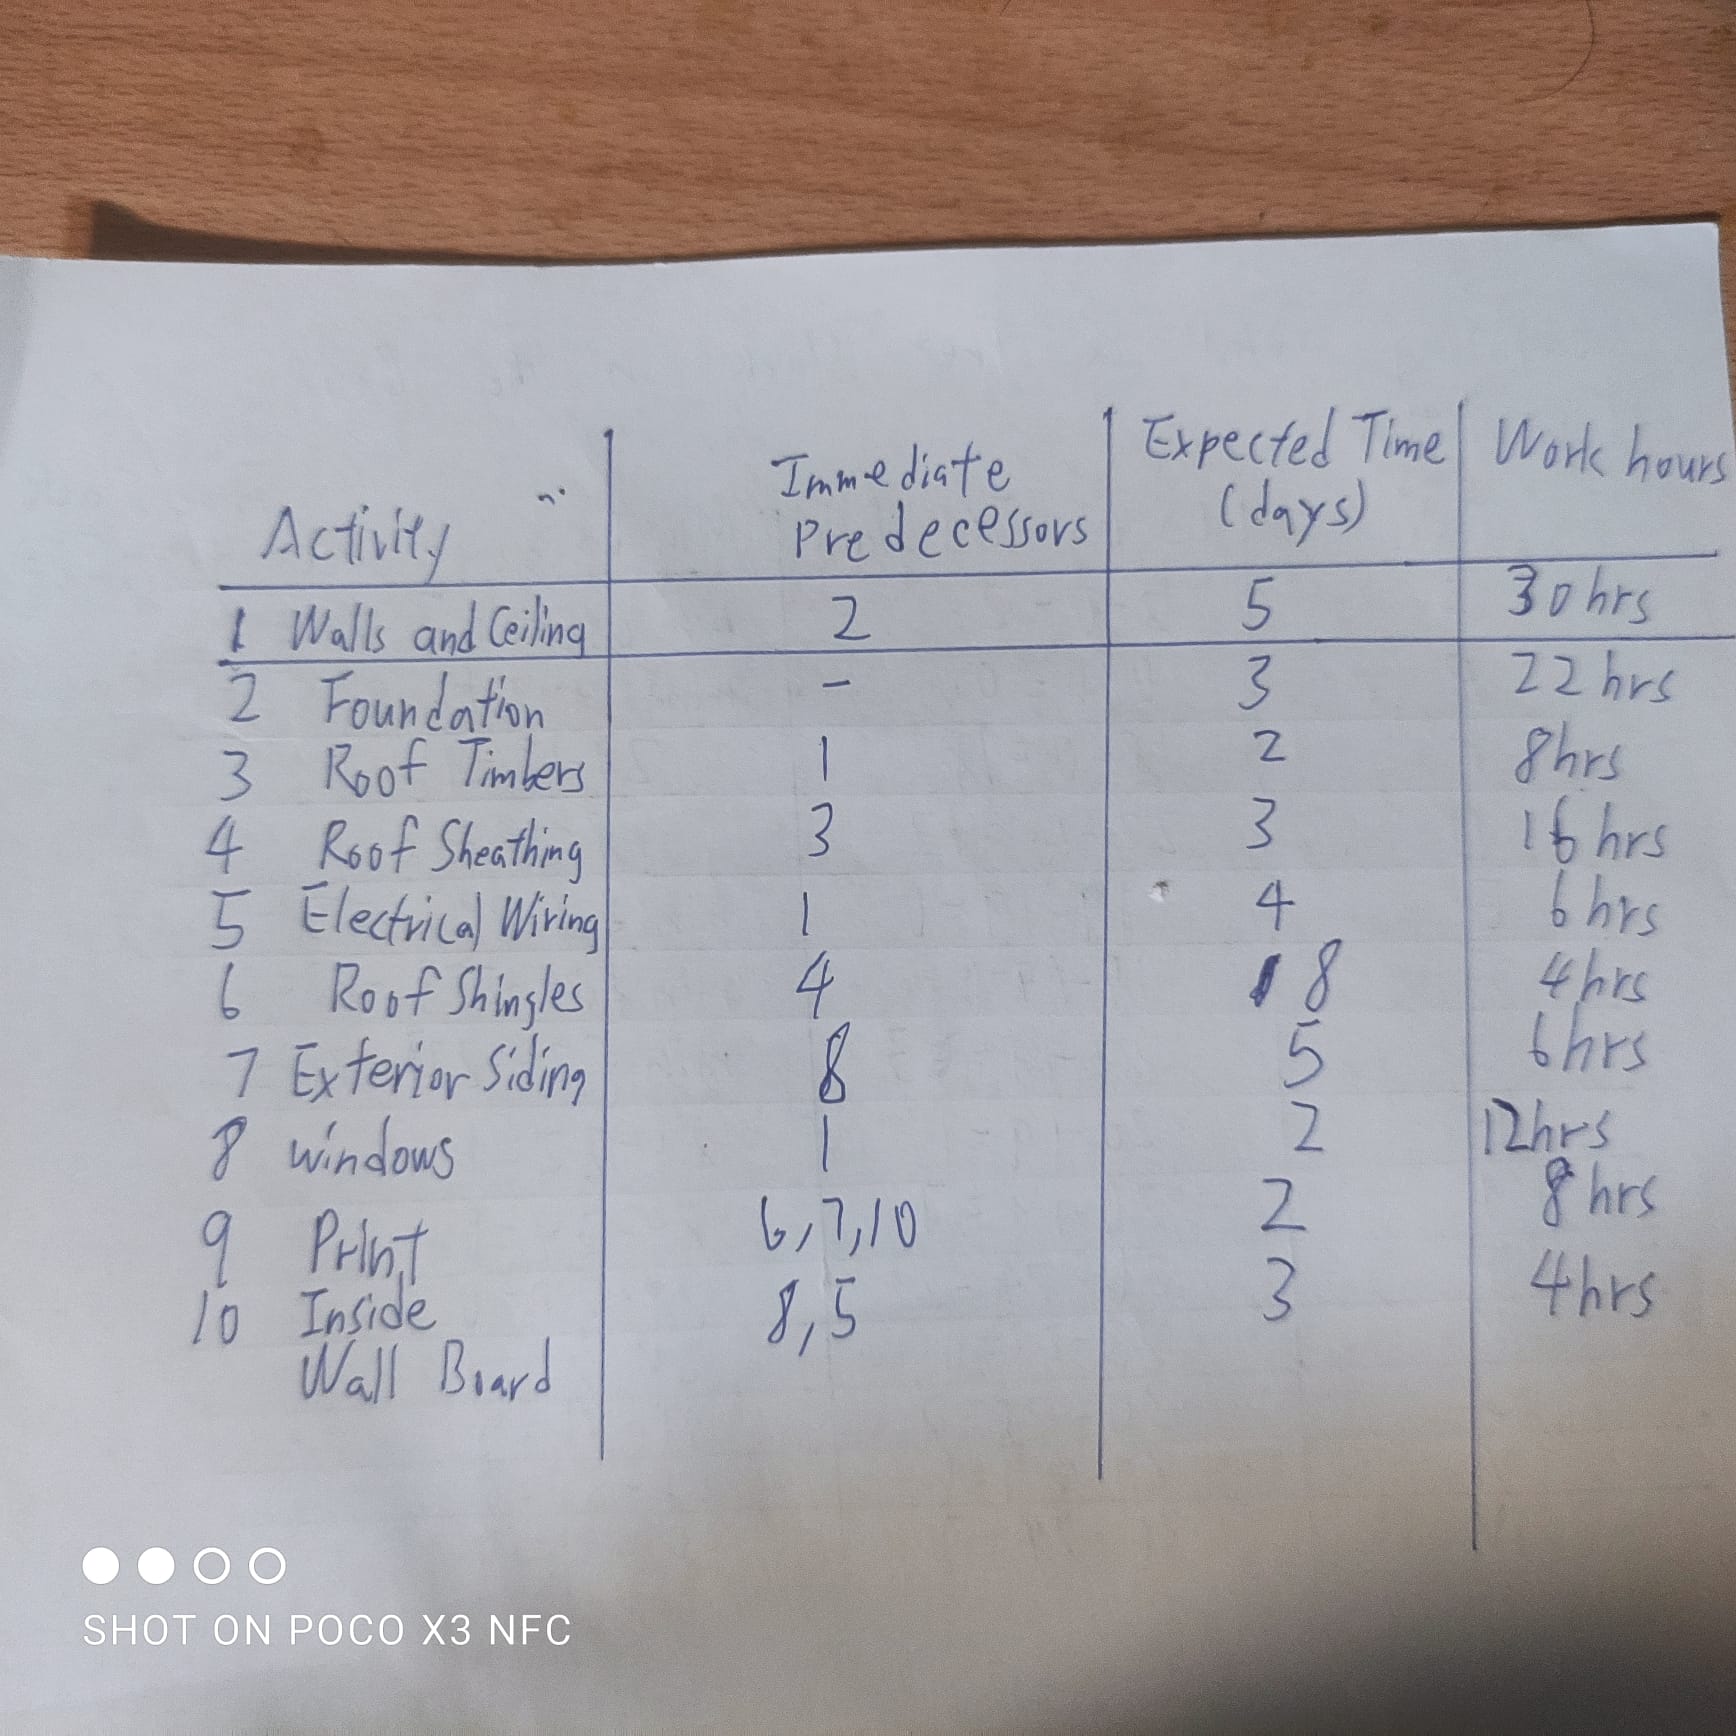 Activity | Immediate Predecessors | Expected Time (days) | Work hours
1 Walls and Ceiling | 2 | 5 | 30 hrs
2 Foundation | - | 3 | 22 hrs
3 Roof Timbers | 1 | 2 | 8 hrs
4 Roof Sheathing | 3 | 3 | 16 hrs
5 Electrical Wiring | 1 | 4 | 6 hrs
6 Roof Shingles | 4 | 8 | 4 hrs
7 Exterior Siding | 8 | 5 | 6 hrs
8 windows | 1 | 2 | 12 hrs
9 Print | 6,7,10 | 2 | 8 hrs
10 Inside | 8,5 | 3 | 4 hrs
Wall Board
SHOT ON POCO X3 NFC